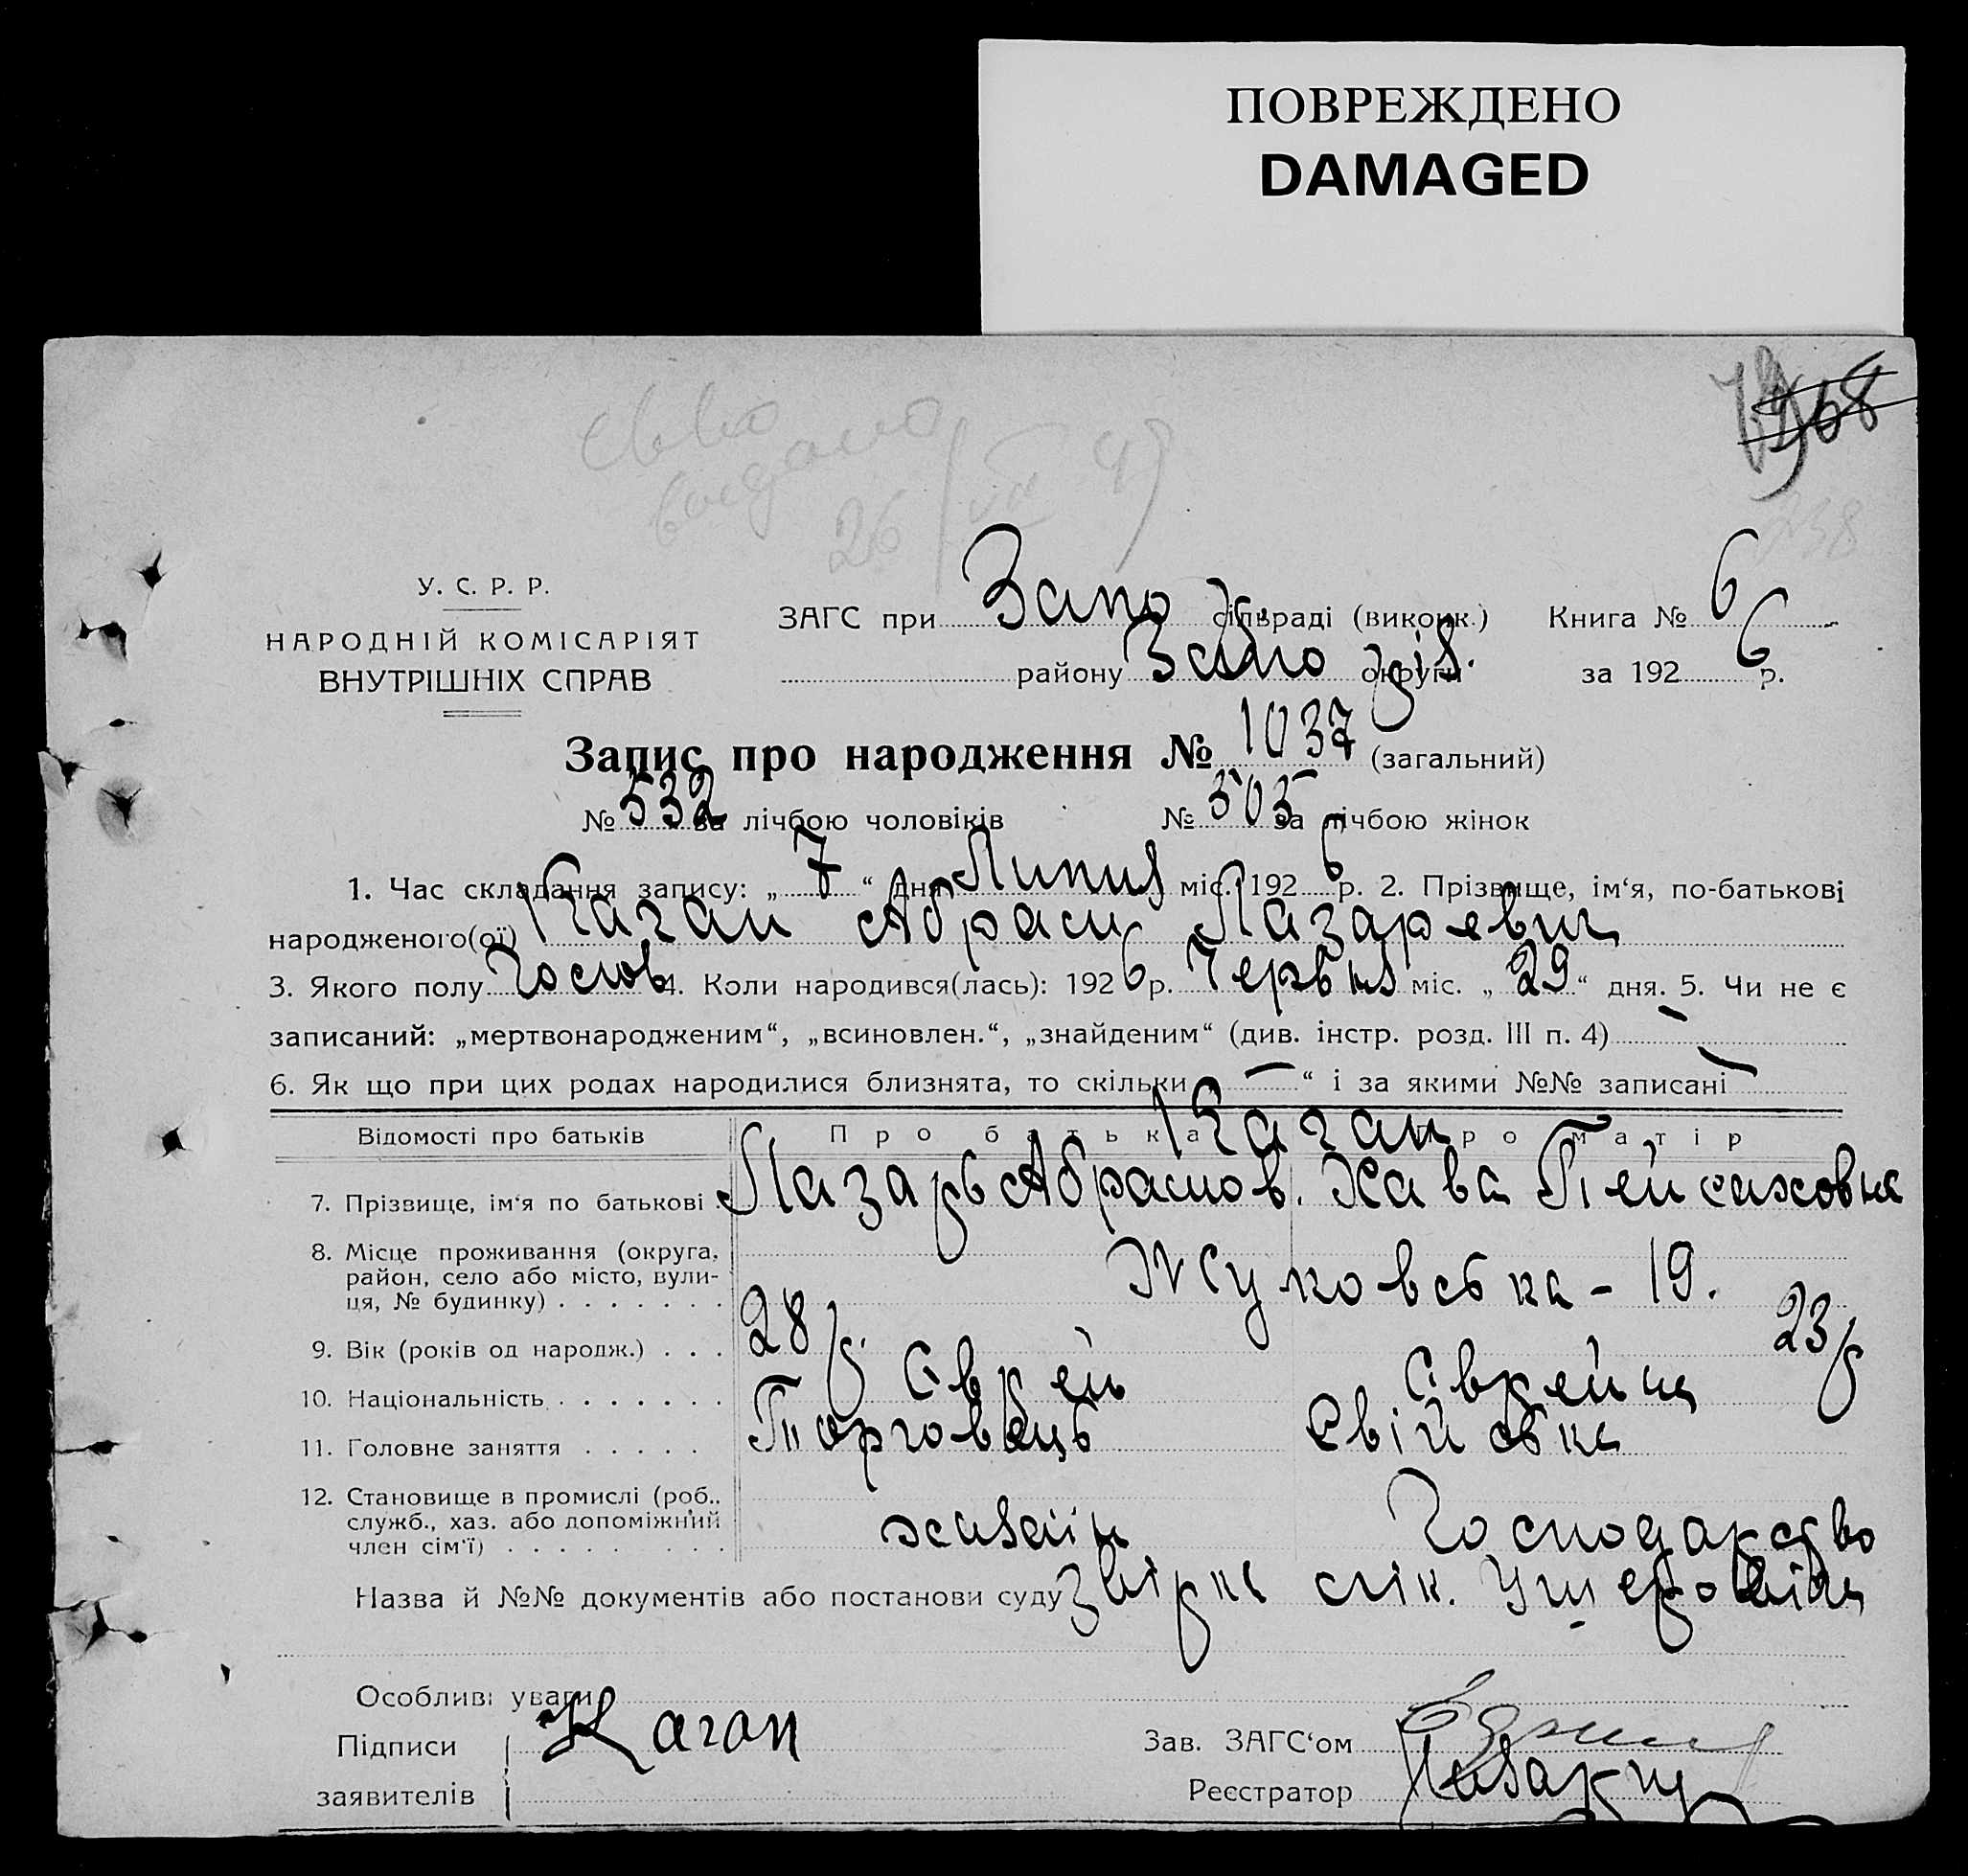 ПОВРЕЖДЕНО
DAMAGED
26/VII 49
238
У. С. Р. Р.
НАРОДНІЙ КОМІСАРІЯТ
ВНУТРІШНІХ СПРАВ
ЗАГС при Запо сільраді (виконк.) Книга № 6
району Запо округи за 1926 р.
Запис про народження № 1037 (загальний)
№ 532 за лічбою чоловіків № 505 за лічбою жінок
1. Час складання запису: „ 7 “ дня Липня міс. 1926 р. 2. Прізвище, ім‘я, по-батькові
народженого(ої) Каган Абрам Лазаревич
3. Якого полу 4. Коли народився(лась): 1926 р. Червня міс. „ 29 “ дня. 5. Чи не є
записаний: „мертвонародженим“, „всиновлен.“, „знайденим“ (див. інстр. розд. III п. 4) –
6. Як що при цих родах народилися близнята, то скільки – “ і за якими №№ записані –
Каган
Відомості про батьків Про батька Про матір
7. Прізвище, ім‘я по батькові Лазарь Абрамов. Хава Пейсаховна
8. Місце проживання (округа,
район, село або місто, вули-
ця, № будинку) Жуковська – 19.
9. Вік (років од народж.) 28 23
10. Національність Єврей Єврейка
11. Головне заняття Торговець Свійська
12. Становище в промислі (роб.,
служб., хаз. або допоміжний
член сім‘ї) хазяїн Господарство
Назва й №№ документів або постанови суду
Особливі уваги
Підписи Каган Зав. ЗАГС‘ом
заявителів Реєстратор